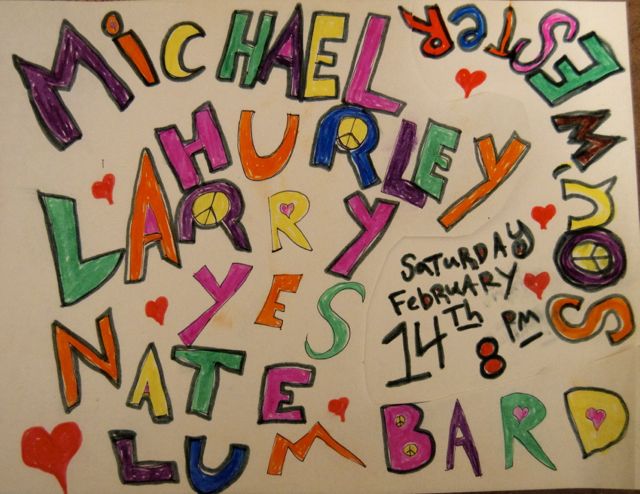 MICHAEL
HURLEY
LARRY
YES
NATE
LUMBARD
SOU'WESTER
SATURDAY
FEBRUARY
14TH
8 PM